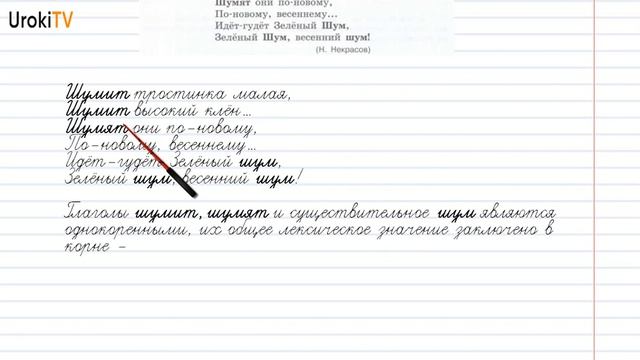 UrokiTV
Шумят они по-новому,
По-новому, весеннему...
Идёт-гудёт Зелёный Шум,
Зелёный Шум, весенний шум!
(Н. Некрасов)
Шумит тростинка малая,
Шумит высокий клён...
Шумят они по-новому,
По-новому, весеннему...
Идёт-гудёт Зелёный шум,
Зелёный шум, весенний шум!
Глаголы шумит, шумят и существительное шум являются
однокоренными, их общее лексическое значение заключено в
корне -